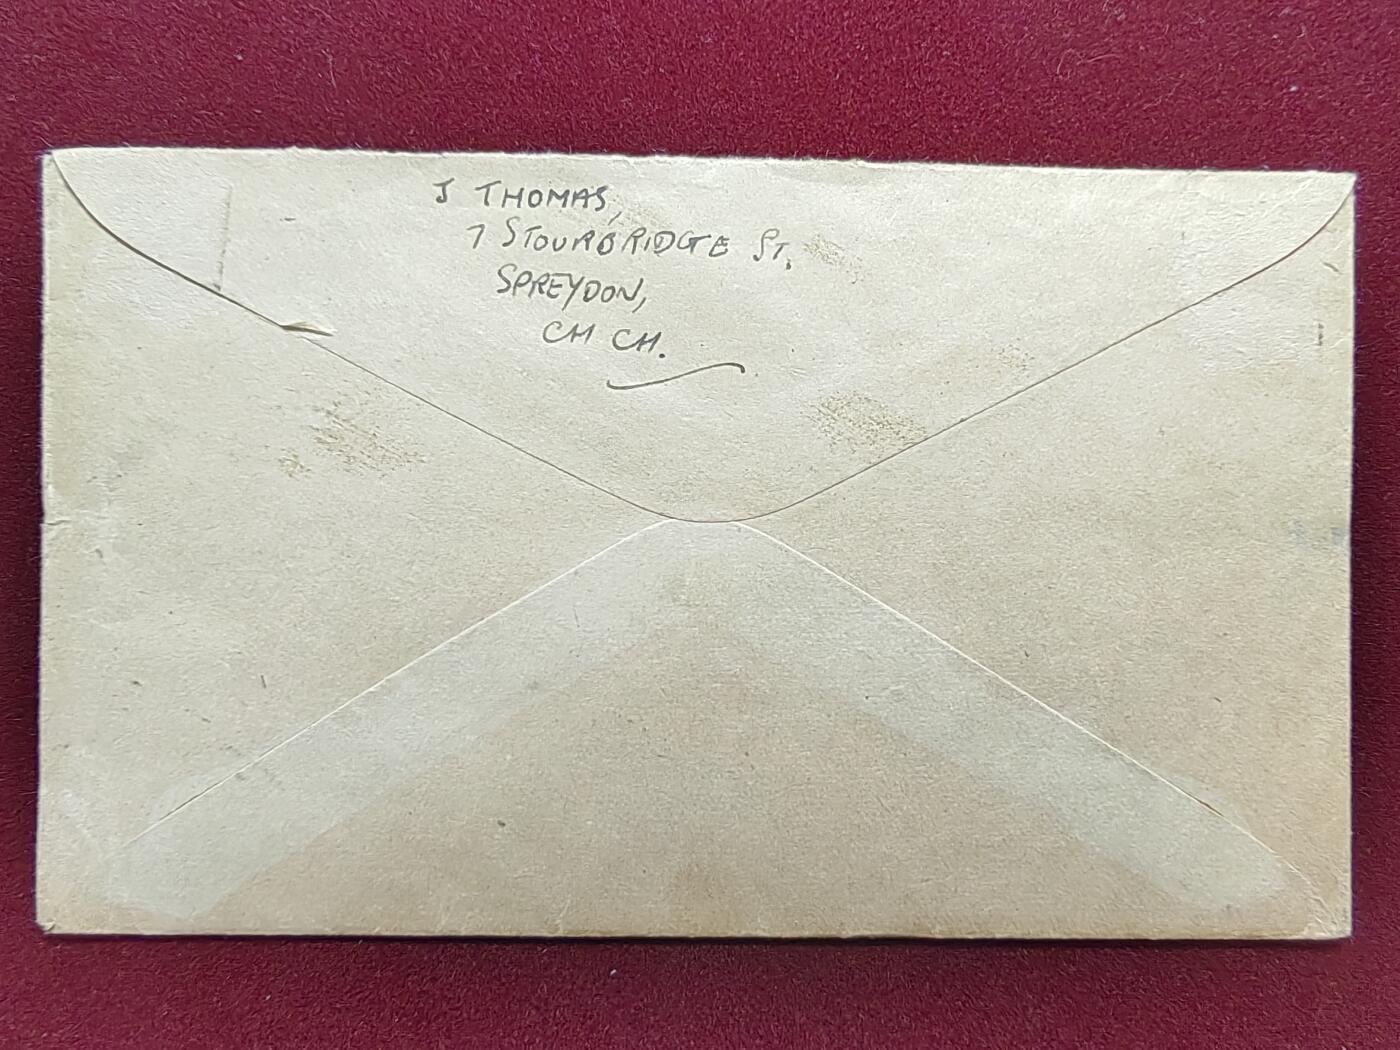 J THOMAS,
7 STOURBRIDGE ST.
SPREYDON,
CH CH.